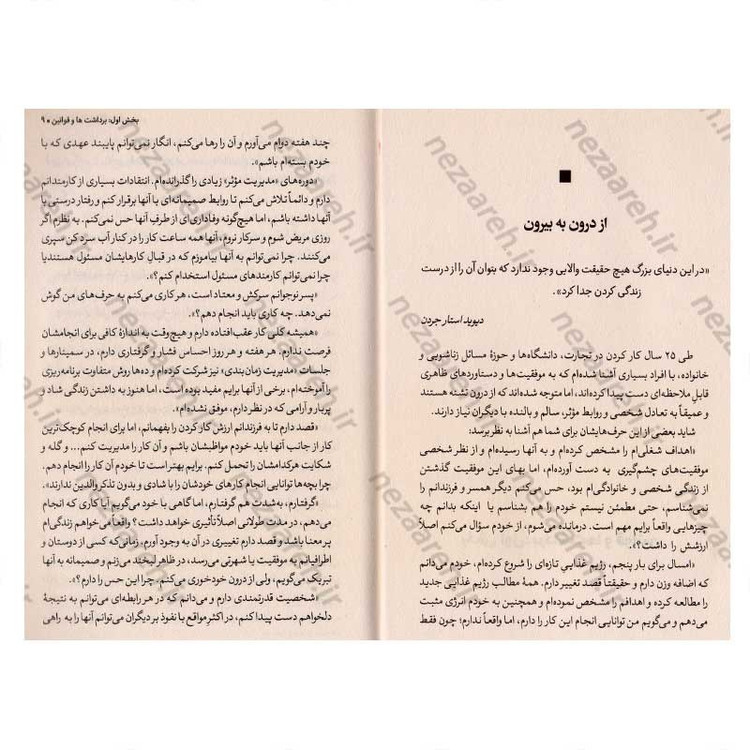 از درون به بیرون
«در این دنیای بزرگ هیچ حقیقت والایی وجود ندارد که بتوان آن را از درست
زندگی کردن جدا کرد».
دیوید استار جردن
طی ۲۵ سال کار کردن در تجارت، دانشگاه‌ها و حوزهٔ مسائل زناشویی و
خانواده، با افراد بسیاری آشنا شده‌ام که به موفقیت‌ها و دستاوردهای ظاهری
قابل ملاحظه‌ای دست پیدا کرده‌اند، اما متوجه شده‌اند که از درون تشنه هستند
و عمیقاً به تعادل شخصی و روابط مؤثر، سالم و بالنده با دیگران نیاز دارند.
شاید بعضی از این حرف‌هایشان برای شما هم آشنا به نظر برسد:
«اهداف شغلی‌ام را مشخص کرده‌ام و به آنها رسیده‌ام و از نظر شخصی
موفقیت‌های چشم‌گیری به دست آورده‌ام، اما بهای این موفقیت گذشتن
از زندگی شخصی و خانوادگی‌ام بود، حس می‌کنم دیگر همسر و فرزندانم را
نمی‌شناسم، حتی مطمئن نیستم خودم را هم بشناسم یا اینکه بدانم چه
چیزهایی واقعاً برایم مهم است. درمانده می‌شوم، از خودم سؤال می‌کنم اصلاً
ارزشش را داشت؟».
«امسال برای بار پنجم، رژیم غذایی تازه‌ای را شروع کرده‌ام، خودم می‌دانم
که اضافه وزن دارم و حقیقتاً قصد تغییر دارم. همهٔ مطالب رژیم غذایی جدید
را مطالعه کرده و اهدافم را مشخص نموده‌ام و همچنین به خودم انرژی مثبت
می‌دهم و می‌گویم من توانایی انجام این کار را دارم، اما واقعاً ندارم؛ چون فقط
بخش اول: برداشت ها و قوانین ● ۹
چند هفته دوام می‌آورم و آن را رها می‌کنم، انگار نمی‌توانم پایبند عهدی که با
خودم بسته‌ام باشم».
«دوره‌های «مدیریت مؤثر» زیادی را گذرانده‌ام. انتقادات بسیاری از کارمندانم
دارم و دائماً تلاش می‌کنم تا روابط صمیمانه‌ای با آنها برقرار کنم و رفتار درستی با
آنها داشته باشم، اما هیچ‌گونه وفاداری‌ای از طرفِ آنها حس نمی‌کنم. به نظرم اگر
روزی مریض شوم و سر کار نروم، آنها همه ساعت کار را در کنار آب سرد کن سپری
می‌کنند. چرا نمی‌توانم به آنها بیاموزم که در قبال کارهایشان مسئول هستند یا
چرا نمی‌توانم کارمندهای مسئول استخدام کنم؟».
«پسر نوجوانم سرکش و معتاد است، هر کاری می‌کنم به حرف‌های من گوش
نمی‌دهد. چه کاری باید انجام دهم؟».
«همیشه کلی کار عقب‌افتاده دارم و هیچ‌وقت به اندازهٔ کافی برای انجامشان
فرصت ندارم. هر هفته و هر روز احساس فشار و گرفتاری دارم، در سمینارها و
جلسات «مدیریت زمان‌بندی» نیز شرکت کرده‌ام و ده‌ها روش متفاوت برنامه‌ریزی
را آموخته‌ام، برخی از آنها برایم مفید بوده است، اما هنوز به داشتن زندگی شاد و
پربار و آرامی که در نظر دارم، موفق نشده‌ام».
«قصد دارم تا به فرزندانم ارزش کار کردن را بفهمانم، اما برای انجام کوچک‌ترین
کار از جانب آنها باید خودم مواظبشان باشم و آن کار را مدیریت کنم... و گله و
شکایت هرکدامشان را تحمل کنم. برایم بهتر است تا خودم آن کار را انجام دهم.
چرا بچه‌ها توانایی انجام کارهای خودشان را با شادی و بدون تذکر والدین ندارند».
«گرفتارم، به‌شدت هم گرفتارم، اما گاهی با خود می‌گویم آیا کاری که انجام
می‌دهم، در مدت طولانی اصلاً تأثیری خواهد داشت؟ واقعاً می‌خواهم زندگی‌ام
پر معنا باشد و قصد دارم تغییری در آن به وجود آورم. زمانی‌که کسی از دوستان و
اطرافیانم به موفقیت یا شهرتی می‌رسد، در ظاهر لبخند می‌زنم و صمیمانه به آنها
تبریک می‌گویم، ولی از درون خودخوری می‌کنم. چرا این حس را دارم؟».
«شخصیت قدرتمندی دارم و می‌دانم که در هر رابطه‌ای می‌توانم به نتیجهٔ
دلخواهم دست پیدا کنم، در اکثرِ مواقع با نفوذ بر دیگران می‌توانم آنها را به راهی
nezaareh.ir